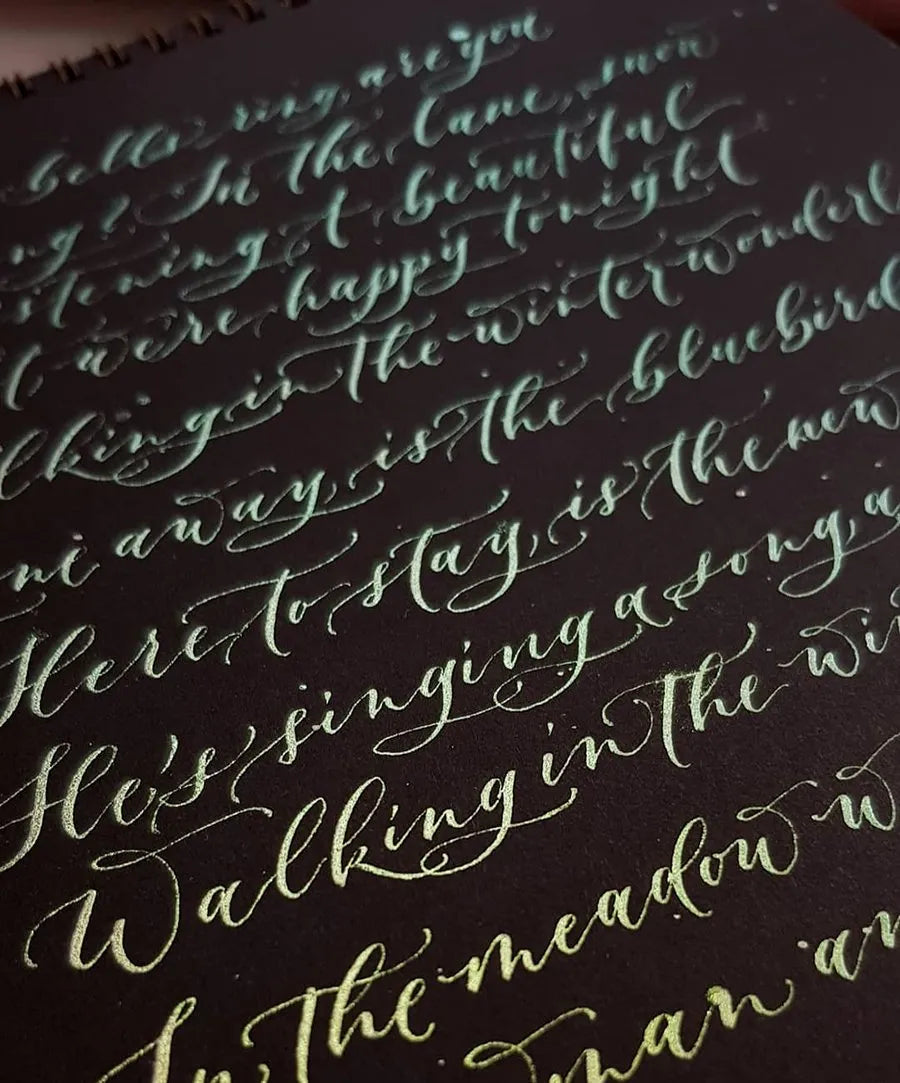 bells ring, are you
ng? In the lane, snow
stening, A beautiful
t, we're happy tonight
lking in the winter wonderl
ne away, is the bluebird
Here to stay, is the new
He's singing a song, a
Walking in the win
In the meadow w
man an